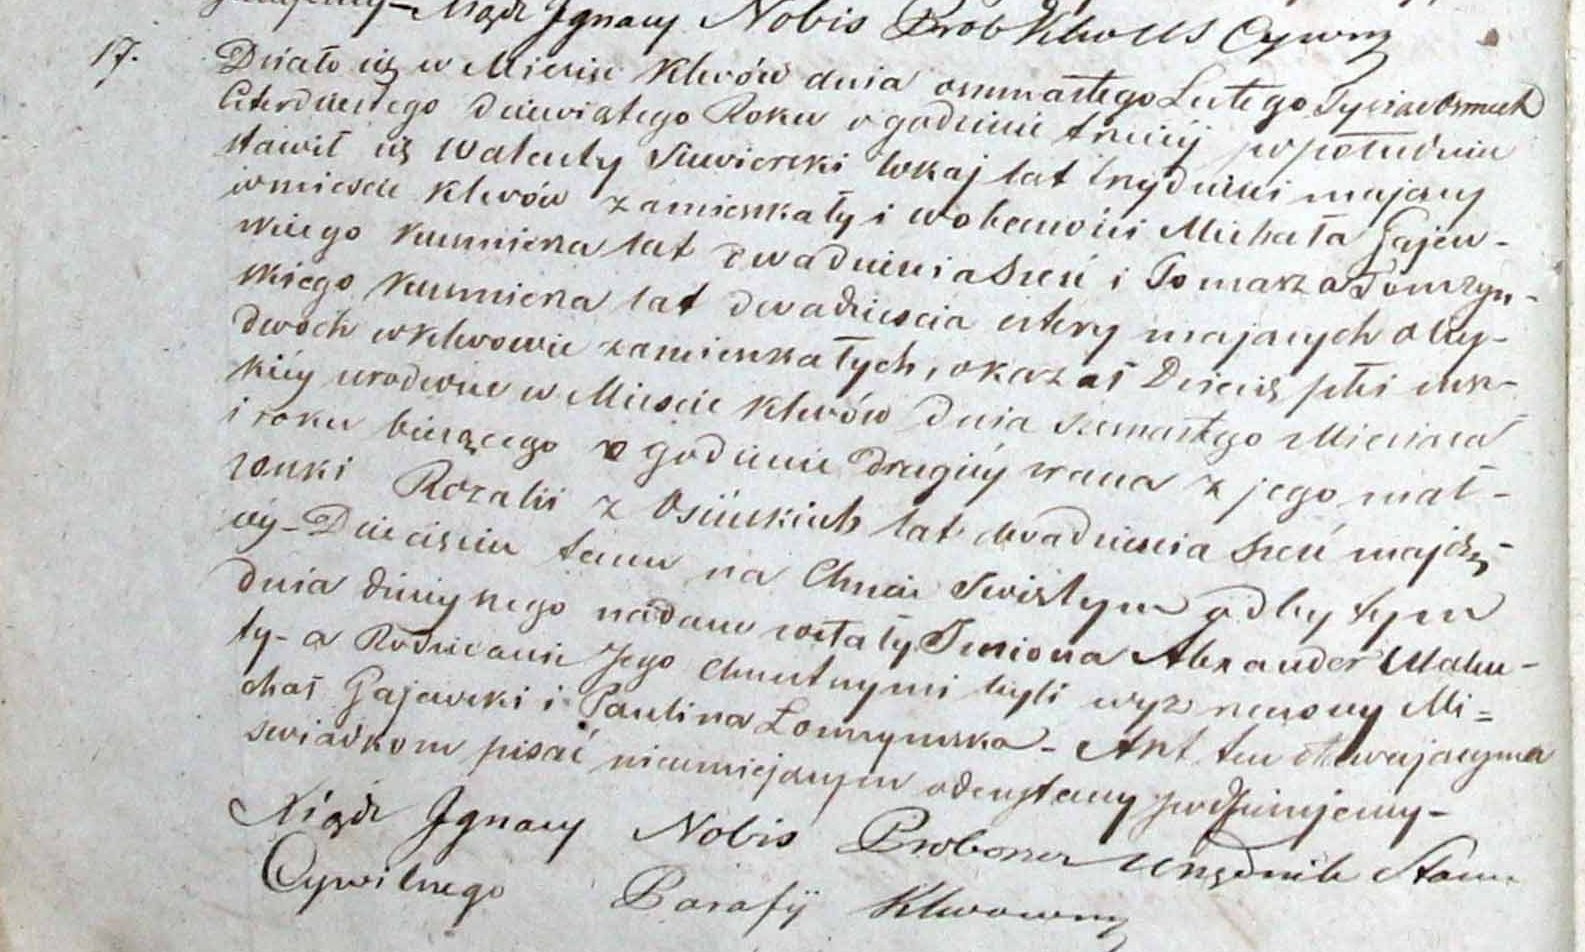 Xiądz Ignacy Nobis Prob Klwo USCywny
17.
Działo się w Mieście Klwów dnia osmnastego Lutego Tysiac Osmset
Czterdziestego dziewiątego Roku o godzinie trzeciej popołudniu
stawił się Walenty Siewierski lokaj lat trzydzieści mający
w mieście Klwów zamieszkały i w obecności Michała Gajew-
skiego kusmierza lat dwadzieścia sześć i Tomasza
skiego kusmierza lat dwadzieścia cztery mających oby-
dwoch w Klwowie zamieszkałych, okazał Dziecię płci męz-
kiéy urodzone w Mieście Klwów dnia siemastego Miesiaca
i roku bieżącego o godzinie drugiéy z rana z jego mał-
zonki Rozalii z Osińskich lat dwadzieścia sześć mają-
céy - Dziecięciu temu na Chrzcie Swiętym odbytym
dnia dzisiejszego nadane zostały Imiona Alexander Walen-
ty - a Rodzicami Jego Chrzestnymi byli wyz rzeczony Mi=
chał Gajewski i Paulina Łomzynska - Akt ten stawającym
swiadkom pisać nieumiejącym odczytany podpisujemy -
Xiądz Ignacy Nobis Proboszcz Urzędnik Stanu
Cywilnego Parafÿ Klwowny